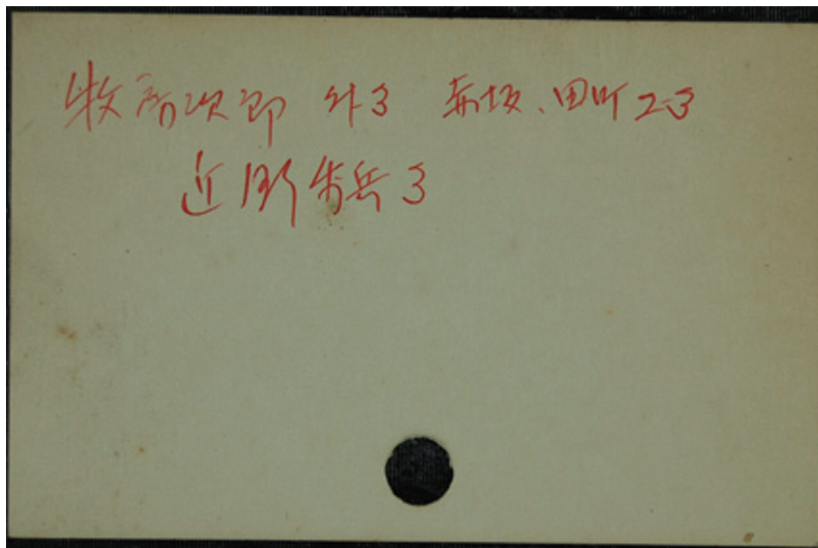 牧 次郎 外3 赤坂、田町2-3
近衛歩兵3